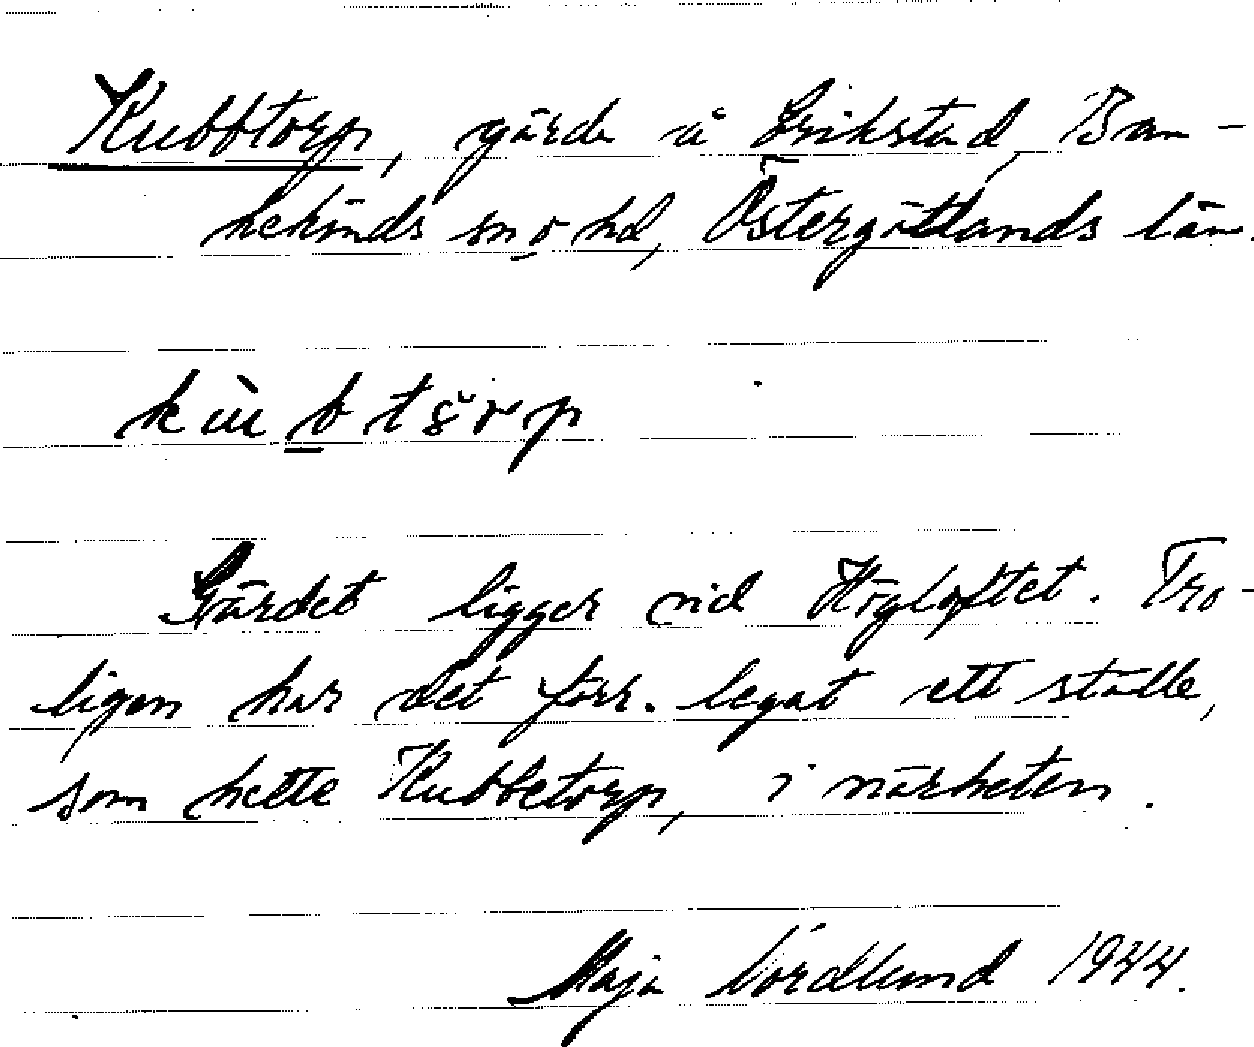 Kubbtorp, gärde å Erikstad, Ban-
kekinds sn o hd, Östergötlands län.
Gärdet ligger vid Högloftet. Tro-
ligen har det förr. legat ett ställe,
som hette Kubbetorp, i närheten.
Maja Nordlund 1944.